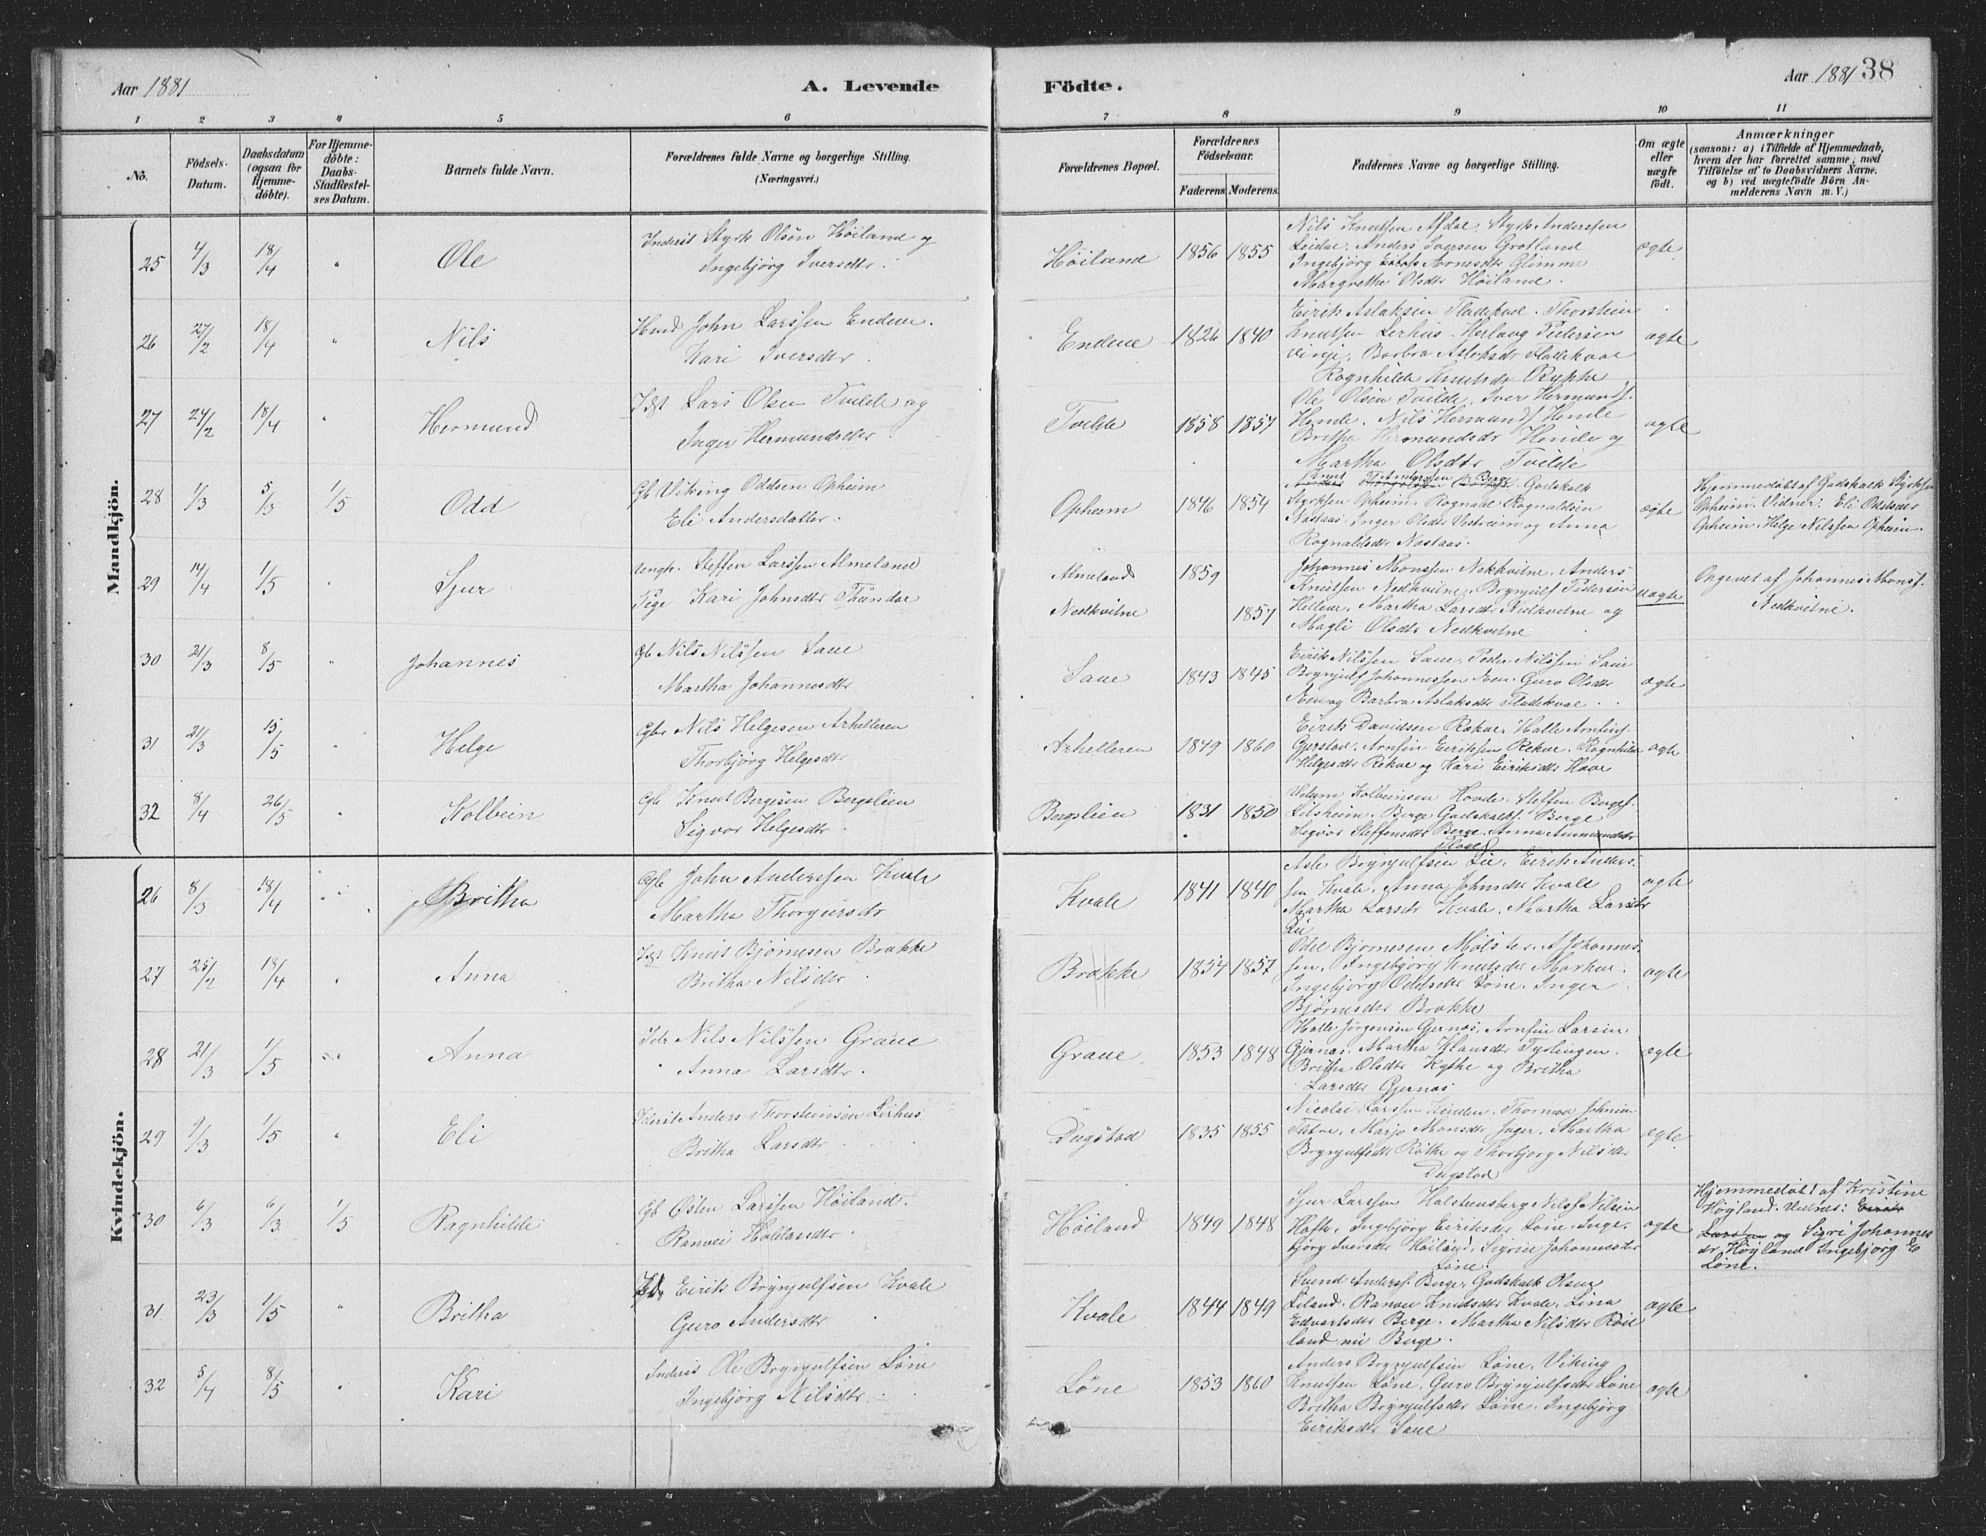 Aar 1881
A. Levende
Födte.
Aar 1881 38
1 2 3 4 5 6 7 8 9 10 11
No.
Födsels-
Datum.
Daabsdatum
(ogsaa for
Hjemme-
döbte).
For Hjemme-
döbte:
Daabs-
Stadfæstel-
ses Datum.
Barnets fulde Navn.
Forældrenes fulde Navne og borgerlige Stilling.
(Næringsvei.)
Forældrenes Bopæl.
Forældrenes
Födselsaar.
Faderens. Moderens.
Faddernes Navne og borgerlige Stilling.
Om ægte
eller
uægte
født.
Anmærkninger
(saasom: a) i Tilfælde af Hjemmedaab,
hvem der har forrettet samme, med
Tilföielse af to Daabsvidners Navne,
og b) ved uægtefödte Börn An-
melderens Navn m. V.)
Mandkjön.
25 4/3 18/4 " Ole
Inderst Styrk Olsen Höiland og
Ingebjörg Iversdtr.
Höiland 1856 1855
Nils Knutsen Afdal, Styrk Anderssen
Anders Iversen Grotland
Ingebjörg Arnesdtr Glimme
Margretha Olsdtr Höiland.
ægte
26 27/2 18/4 " Nils
John Larssen Endeve.
Kari Iversdtr.
Endeve 1826 1840
Eirik Aslaksen Flatekval. Thorstein
Knutsen Lirhus. Herlaug Pedersen
Vinje, Barbra Aslaksdr Flatekvaal
Ragnhilda Knutsdr Rykke
ægte
27 24/2 18/4 " Hermund
Lars Olsen Tvilde og
Inger Hermundsdtr.
Tvilde 1858 1857
Ole Olsen Tvilde, Iver Hermunds.
Honde. Nils Hermunds Honde
Britha Hermundsdr Honde og
Martha Olsdtr Tvilde
ægte
28 1/3 5/3 1/5 Odd
Gb Viking Oddsen Opheim
Eli Andersdatter.
Opheim 1846 1854
Godskalk
Styrksen Opheim. Ragnald Ragnaldsen
Nastaas. Inger Olsdtr Vestreim og Anna
Ragnaldsdtr Nastaas.
ægte
Hjemmedöbt af Godskalk Styrksen
Opheim. Vidner: Eli Oddsdtr
Opheim. Helge Nilssen Opheim.
29 14/4 1/5 " Sjur
Ungkr. Steffen Larssen Almeland
Pige Kari Johnsdtr Thundal
Almeland 1859
Nedkvitne 1857
Johannes Monssen Nedkvitne. Anders
Knutsen Nedkvitne, Brynjulf Pedersen
Helleve, Martha Larsdtr Nedkvitne og
Magli Olsdtr Nedkvitne
uægte
Opgivet af Johannes Monss.
Nedkvitne.
30 21/3 8/5 " Johannes
Gb Nils Nilssen Saue
Martha Johannesdtr
Saue 1843 1845
Eirik Nilssen Saue, Peder Nilssen Saue
Brynjulf Johannessen Æen. Guro Olsdtr
Æen og Barbra Aslaksdtr Flatekval.
ægte
31 21/3 15/5 " Helge
Gbr Nils Helgesen Arhelleren
Thorbjörg Helgesdtr
Arhelleren 1849 1860
Eirik Davidsen Rekve, Halle Arnfins.
Gjerstad. Arnfin Eiriksen Rekve. Ragnhilda
Helgesdtr Rekve og Kari Eiriksdtr Haar
ægte
32 8/4 26/5 " Kolbein
Gb Knut Bergesen Bergslien
Sigvor Helgesdtr.
Bergslien 1831 1850
Kolbeinsen Hovde. Steffen Berges.
Litsheim. Berge Godskalks. Berge
Sigvor Steffensdtr Berge. Anna Aumundsdtr
ægte
Kvindekjön.
26 8/3 18/4 " Britha
Gb John Anderssen Kvale
Martha Thorgersdr
Kvale 1841 1840
Asle Brynjulfsen Lie. Eirik Anders-
sen Kvale. Anna Johnsdtr Kvale
Martha Larsdtr Kvale. Martha Larsdtr
Lie
ægte
27 25/2 18/4 " Anna
Knut Bjørnesen Brakke
Britha Nilsdtr
Brakke 1854 1857
Odd Bjornesen Mölster, A Johannes-
sen, Ingebjörg Knutsdr Markve.
Ingebjörg Oddsdtr Löne. Inger
Bjørnesdtr Brakke
ægte
28 21/3 1/5 " Anna
Nils Nilssen Graue
Anna Larsdtr.
Graue 1853 1848
Halle Jörgensen Gjernæs. Arnfin Larsen
Gjernæs. Martha Klausdtr Tyslingen.
Britha Olsdtr Kythe og Britha
Larsdtr Gjernæs
ægte
29 9/3 1/5 " Eli
Iderst Anders Thorsteinsen Lirhus
Britha Larsdtr
Dugstad 1835 1855
Nicolai Larssen Kinden. Thormod Johnsen
Marjo Monsdtr Jager. Martha
Brynjulfsdtr Röthe og Thorbjörg Nilsdtr
Dugstad
ægte
30 6/3 6/3 1/5 Ragnhilde
Gb Østen Larssen Höiland.
Ranvei
Höiland 1849 1848
Sjur Larssen Halstensberg Nils Nilsen
Ingebjörg Eiriksdtr Löne. Inge-
björg Iversdtr Höiland, Sigrid Johannesdtr
Löne.
ægte
Hjemmedöbt af Kristine
Höyland. Vidner:
Larssen og Sigri Johannes
dr Höyland Ingebjörg E
Löne.
31 23/3 1/5 " Britha
Eirik Brynjulfsen Kvale
Guro Andersdtr
Kvale 1844 1849
Svend Anderss. Berge, Godskalk Olsen
Liland. Ranvei Knutsdtr Kvale, Lina
Edvartsdtr Berge. Martha Nilsdtr
Berge.
ægte
32 5/4 8/5 " Kari
Inderst Ole Brynjulfsen Löne
Ingebjörg Nilsdtr
Löne 1853 1860
Anders Brynjulfsen Löne, Viking
Knutsen Löne, Guro Brynjulfsdtr Löne
Britha Brynjulfsdtr Löne, Ingebjörg
Eiriksdtr Saue
ægte